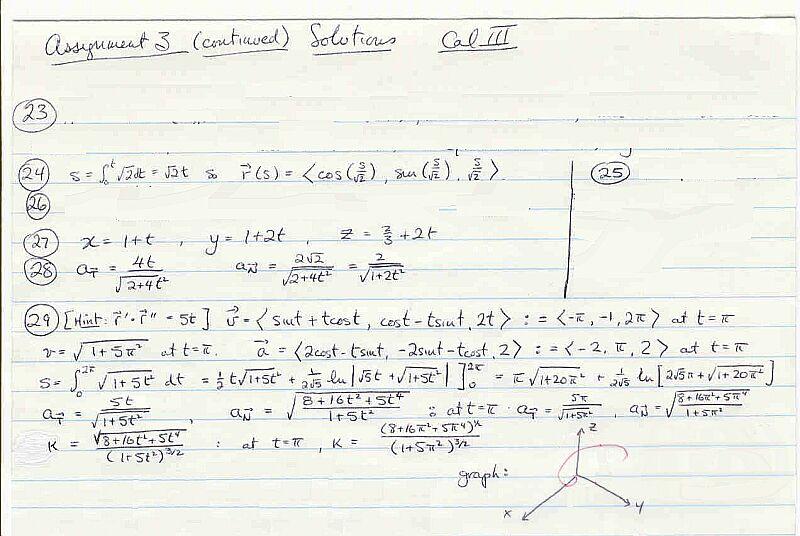 Assignment 3 (continued) Solutions Cal III
23
24 s = ∫₀ᵗ √2 dt = √2t so r⃗(s) = ⟨cos(s/√2), sin(s/√2), s/√2⟩ 25
26
27 x = 1+t , y = 1+2t , z = 2/3 + 2t
28 a_T⃗ = 4t/√(2+4t²) a_N⃗ = 2√2/√(2+4t²) = 2/√(1+2t²)
29 [Hint: r⃗'·r⃗'' = 5t] v⃗ = ⟨sint + tcost, cost - tsint, 2t⟩ : = ⟨-π, -1, 2π⟩ at t = π
v = √(1+5π²) at t=π. a⃗ = ⟨2cost - tsint, -2sint - tcost, 2⟩ : = ⟨-2, π, 2⟩ at t = π
S = ∫₀^2π √(1+5t²) dt = ½t√(1+5t²) + 1/(2√5) ln|√5t + √(1+5t²)| ]₀^2π = π√(1+20π²) + 1/(2√5) ln[2√5π + √(1+20π²)]
a_T⃗ = 5t/√(1+5t²) , a_N⃗ = √((8+16t²+5t⁴)/(1+5t²)) : at t=π · a_T⃗ = 5π/√(1+5π²) , a_N⃗ = √((8+16π²+5π⁴)/(1+5π²))
K = √(8+16t²+5t⁴)/(1+5t²)^3/2 : at t=π , K = (8+16π²+5π⁴)^½/(1+5π²)^3/2
graph: z
x y